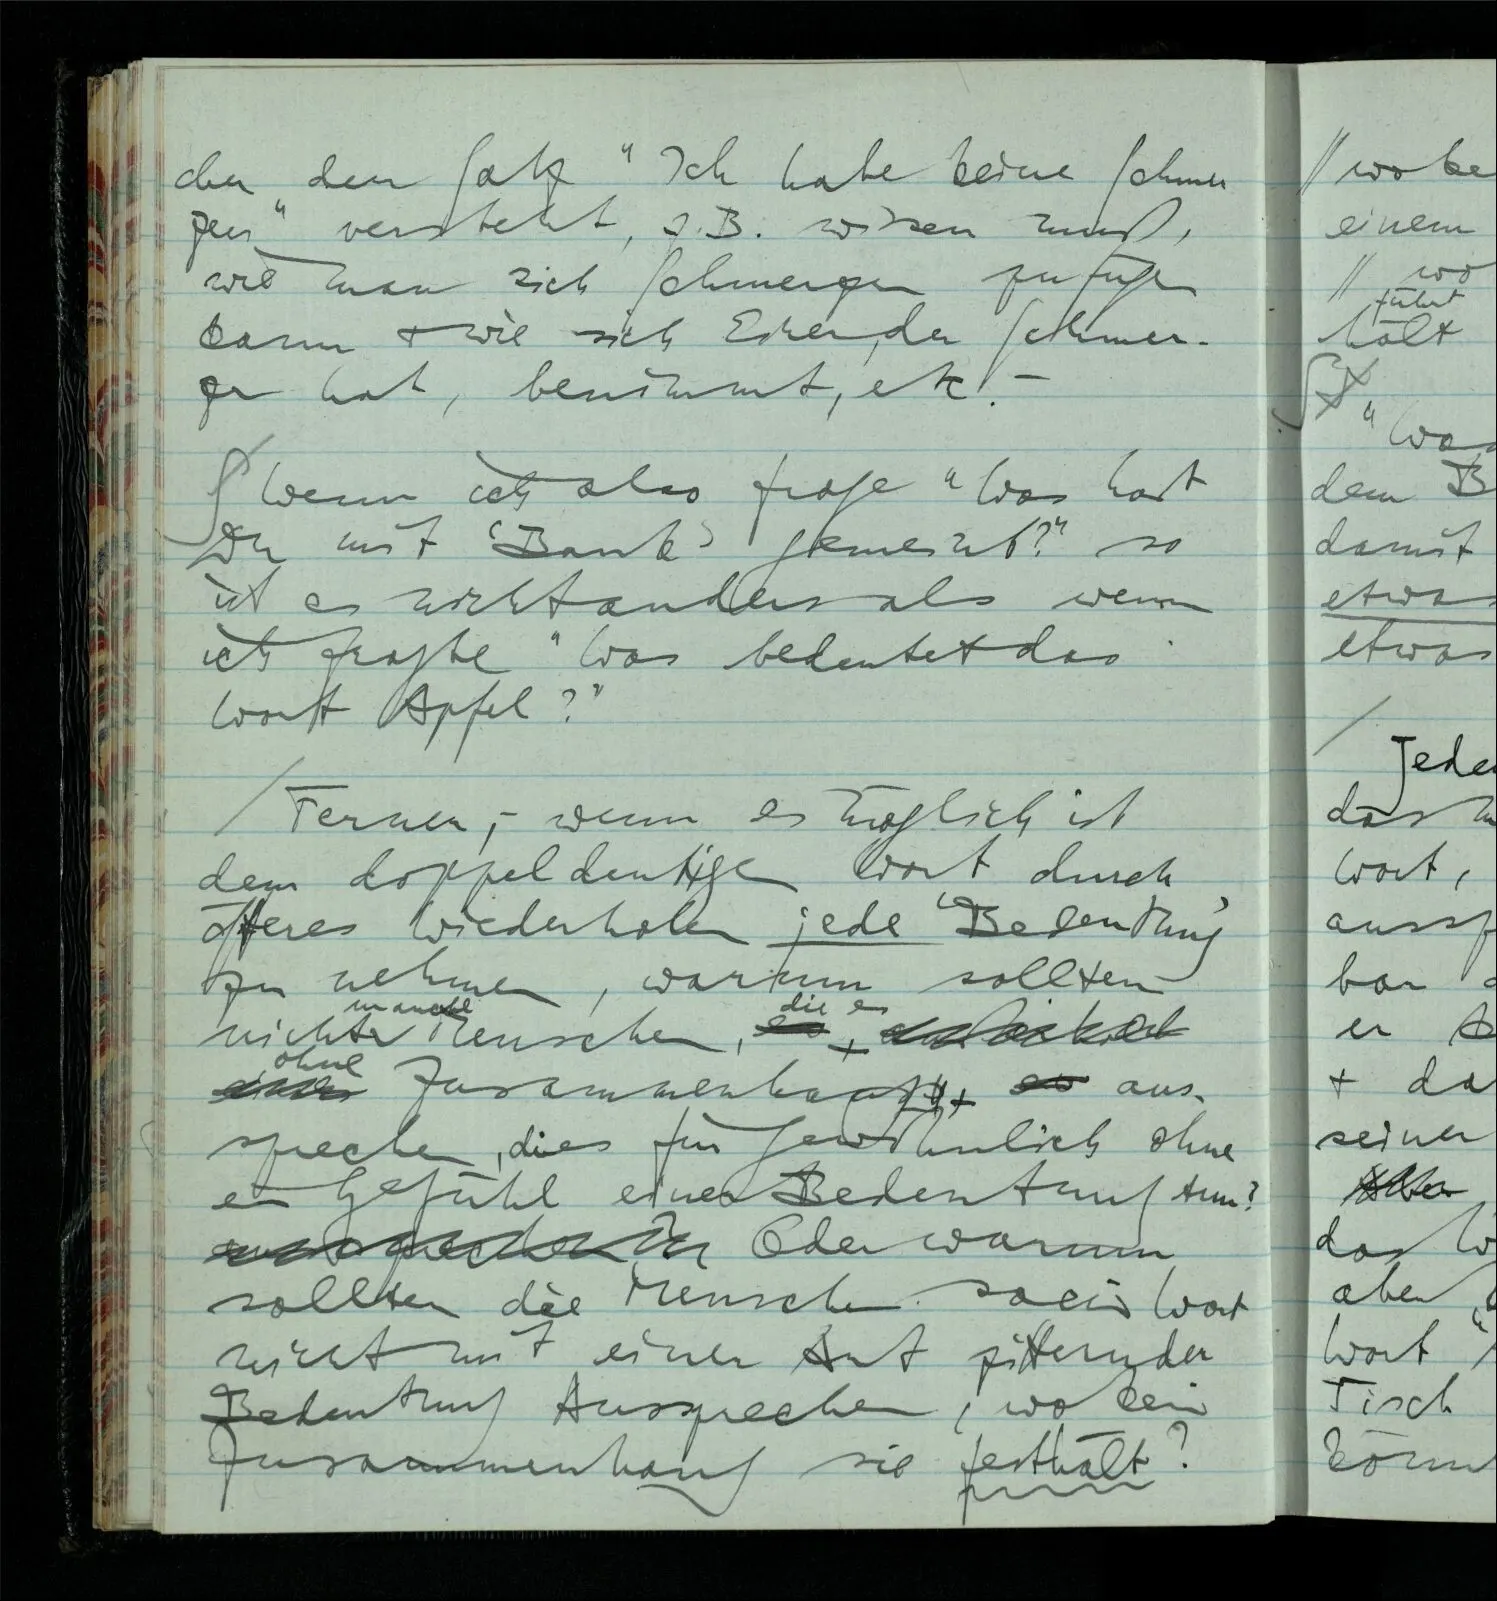 cher den Satz "Ich habe keine Schmer
zen" versteht, z.B. wissen muß,
wie man sich Schmerzen zufügen
kann + wie sich Einer, der Schmer-
zen hat, benimmt, etc. –
∫ Wenn ich also frage "Was hast
Du mit 'Bank' gemeint?" so
ist es nicht anders als wenn
ich fragte "Was bedeutet das
Wort Apfel?"
/ Ferner, – wenn es möglich ist
dem doppeldeutigen Wort durch
öfteres Wiederholen jede 'Bedeutung'
zu nehmen, warum sollten
nicht manche Menschen, die es
ohne Zusammenhang aus-
sprechen, dies für gewöhnlich ohne
ein Gefühl einer Bedeutung tun?
Oder warum
sollten die Menschen so ein Wort
nicht mit einer Art zitternder
Bedeutung Aussprechen, wo kein
Zusammenhang sie festhält?
// wo ke
einem
// wo
führt
hält
∫ "Was
dem B
damit
etwas
etwas
/ Jeden
das
Wort,
aussp
bar
er
+ da
seiner
Aber
das W
aber
Wort
Tisch
könn